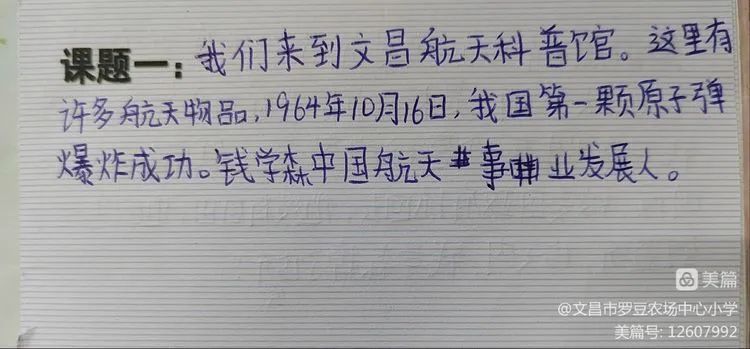 课题一：我们来到文昌航天科普馆。这里有
许多航天物品，1964年10月16日，我国第一颗原子弹
爆炸成功。钱学森中国航天事业发展人。
美篇
@文昌市罗豆农场中心小学
美篇号：12607992